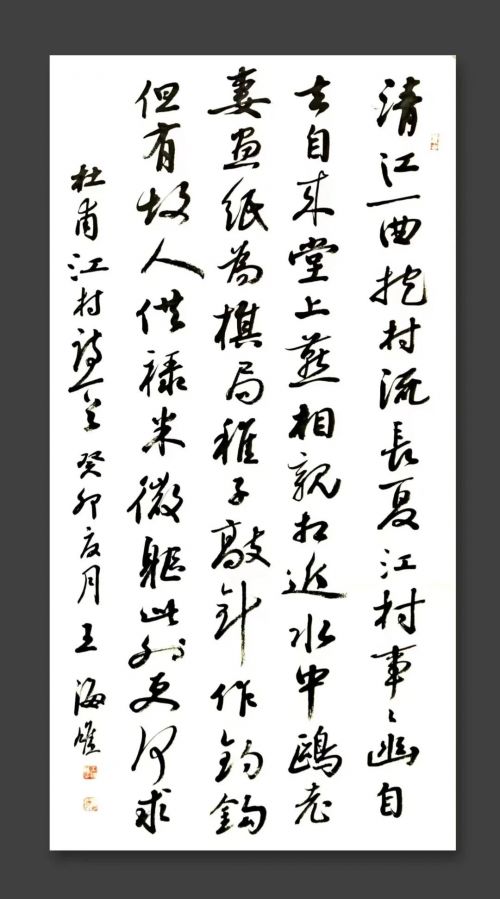 清江一曲抱村流長夏江村事〻幽自
去自来堂上燕相親相近水中鷗老
妻畫紙為棋局稚子敲針作釣鈎
但有故人供祿米微軀此外更何求
杜甫江村詩一首 癸卯夏月 王海